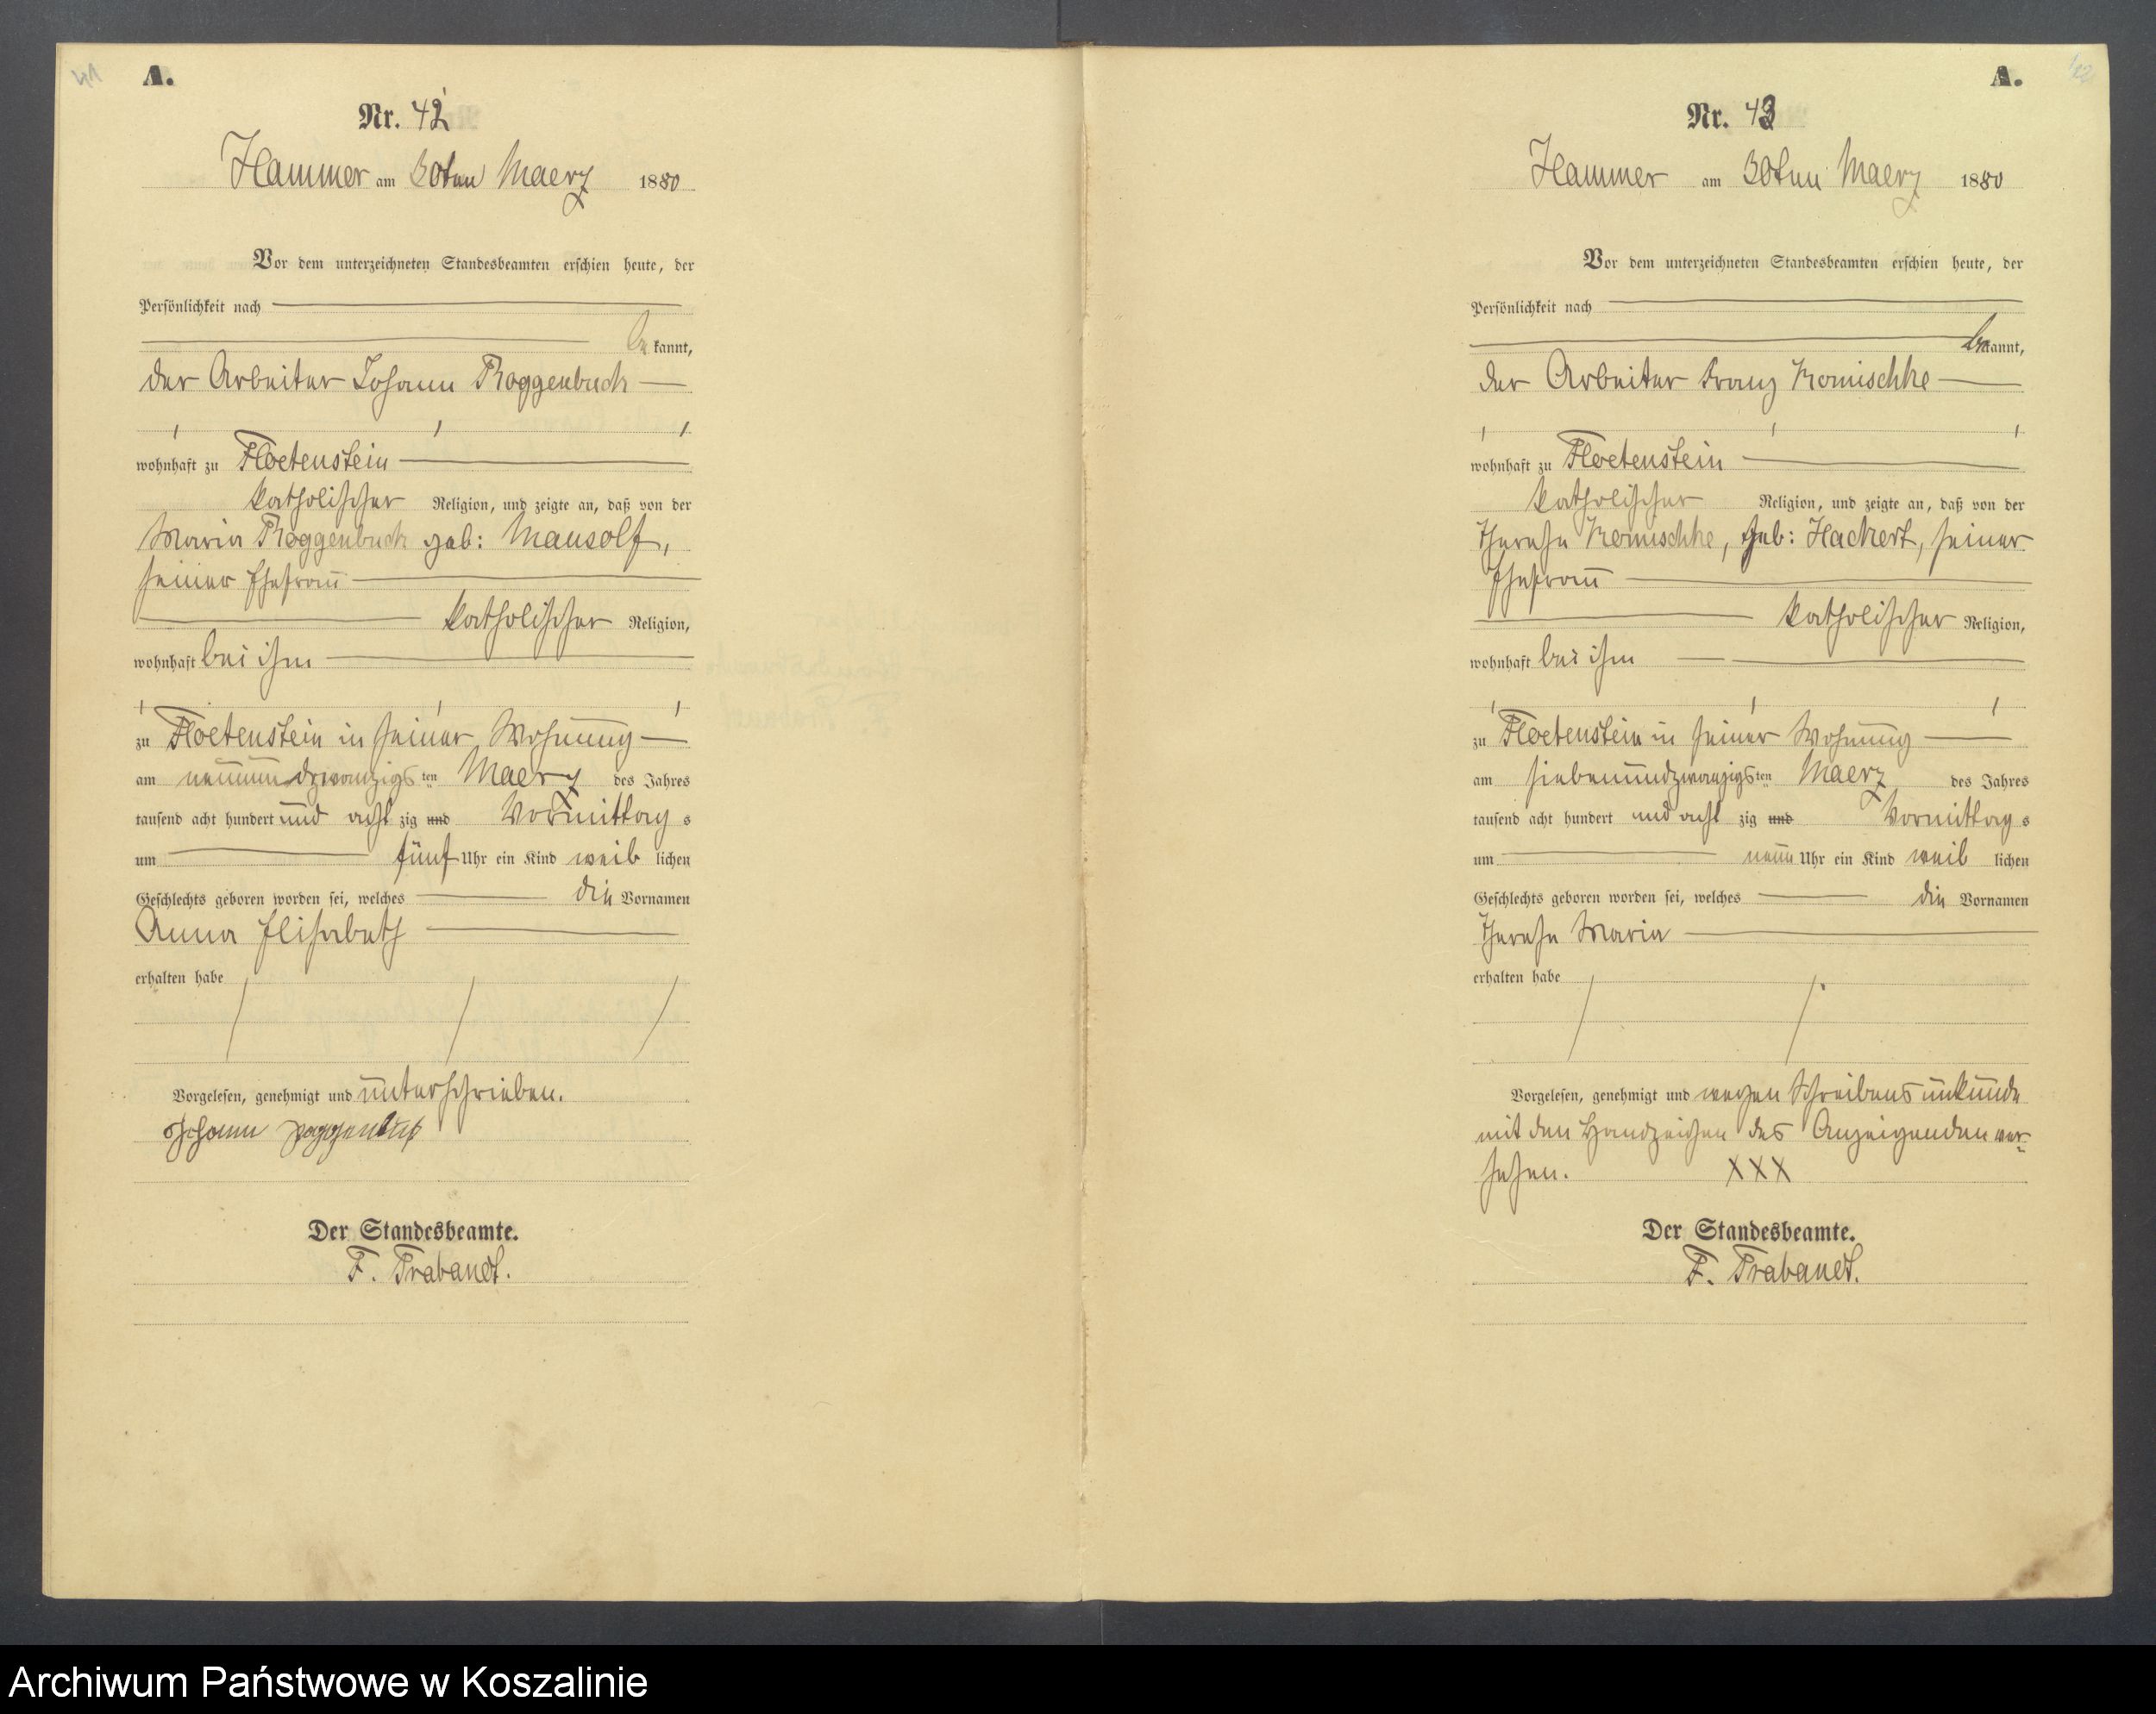 41
A.
Nr. 42
Hammer am 30ten Maerz 1880
Vor dem unterzeichneten Standesbeamten erschien heute, der
Persönlichkeit nach
be kannt,
der Arbeiter Johann Roggenbuck
wohnhaft zu Floetenstein
katholischer Religion, und zeigte an, daß von der
Maria Roggenbuck geb: Mausolf,
seiner Ehefrau
katholischer Religion,
wohnhaft bei ihm
zu Floetenstein in seiner Wohnung
am neunundzwanzigsten Maerz des Jahres
tausend acht hundert und acht zig und Vormittag s
um fünf Uhr ein Kind weib lichen
Geschlechts geboren worden sei, welches die Vornamen
Anna Elisabeth
erhalten habe
Vorgelesen, genehmigt und unterschrieben.
Johann Roggenbuck
Der Standesbeamte.
F. Trabandt.
A.
Nr. 43
Hammer am 30ten Maerz 1880
Vor dem unterzeichneten Standesbeamten erschien heute, der
Persönlichkeit nach
bekannt,
der Arbeiter Franz Komischke
wohnhaft zu Floetenstein
katholischer Religion, und zeigte an, daß von der
Therese Komischke, geb: Hackert, seiner
Ehefrau
katholischer Religion,
wohnhaft bei ihm
zu Floetenstein in seiner Wohnung
am siebenundzwanzigsten Maerz des Jahres
tausend acht hundert und acht zig und Vormittag s
um neun Uhr ein Kind weib lichen
Geschlechts geboren worden sei, welches die Vornamen
Therese Maria
erhalten habe
Vorgelesen, genehmigt und wegen Schreibens unkunde
mit den Handzeichen des Anzeigenden ver-
sehen. XXX
Der Standesbeamte.
F. Trabandt.
Archiwum Państwowe w Koszalinie